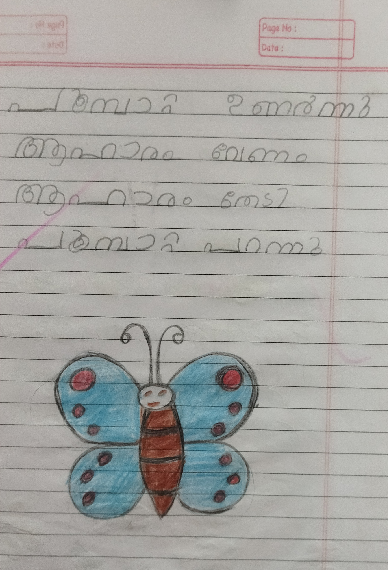 Page No :
Date :
പൂമ്പാറ്റ ഉണർന്നു
ആഹാരം വേണം
ആഹാരം തേടി
പൂമ്പാറ്റ പറന്നു